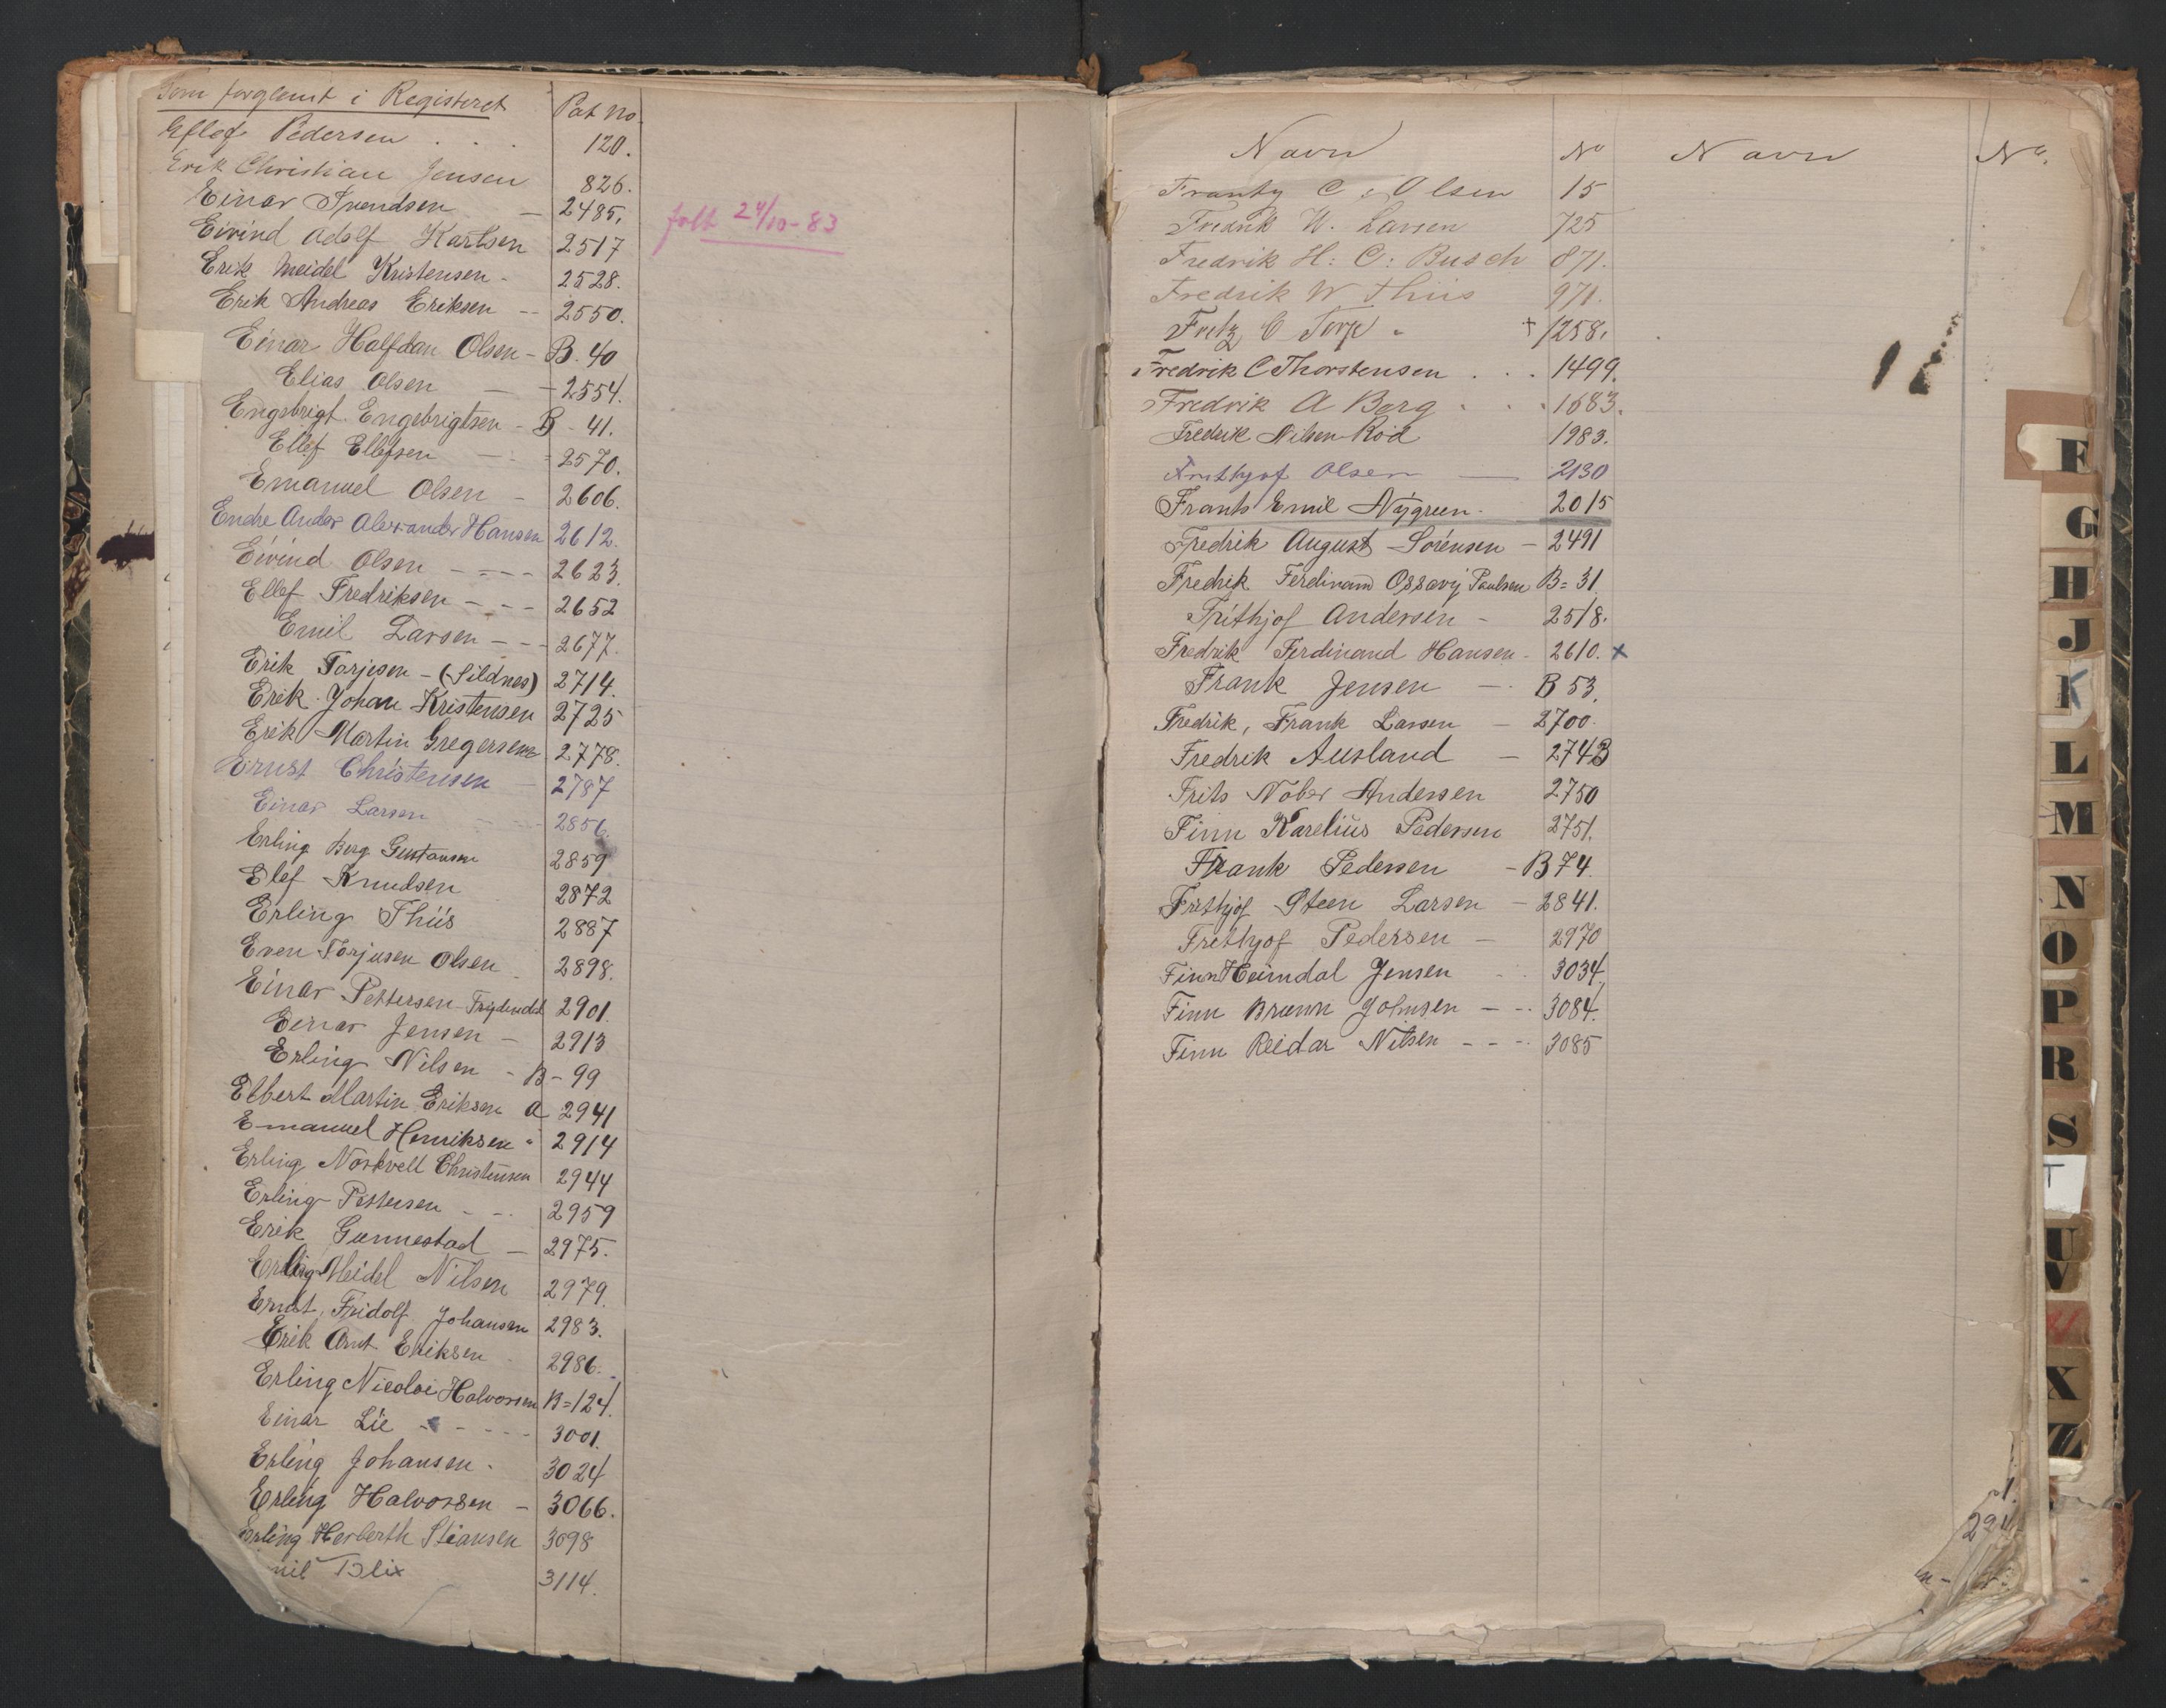 Som forglemt i Registeret Pat No.
Eflef Pedersen . . . 120.
Erik Christian Jensen 826.
Einar Svendsen — 2485.
Eivind Adolf Karlsen 2517
Erik Meidel Kristensen - 2528.
Erik Andreas Eriksen -- 2550.
Einar Halfdan Olsen - B. 40
Elias Olsen — 2554.
Engebrigt Engebrigtsen - B - 41.
Ellef Ellefsen — 2570.
Emanuel Olsen - 2606.
Endre Ander Alexander Hansen 2612.
Eivind Olsen ---- 2623.
Ellef Fredriksen --- 2652
Emil Larsen --- 2677.
Erik Torjesen - (Sildnes) 2714.
Erik Johan Kristensen 2725
Erik Martin Gregersen 2778.
Ernst Christensen - 2787
Einar Larsen 2856.
Erling Berg Gustavsen 2859
Elef Knudsen 2872
Erling Thiis 2887
Even Torjusen Olsen - 2898.
Einar Pettersen 2901.
Einar Jensen - 2913
Erling Nilsen - B - 99
Elbert Martin Eriksen A 2941
Emanuel Henriksen " 2914
Erling Norkvell Christensen 2944
Erling Pettersen - - 2959
Erik Gunnestad - 2975.
Erling Meidel Nilsen 2979.
Ernst, Fridolf Johansen 2983.
Erik Arnt Eriksen 2986.
Erling Nicolai Halvorsen B=124.
Einar Lie - - - - 3001.
Erling Johansen . 3024
Erling Halvorsen - 3066.
Erling Herberth Stiansen 3098
mil Blix 3114.
folt 24/10-83
Navn No Navn No.
Frantz C. Olsen 15
Fredrik W. Larsen 725
Fredrik H: C: Busch 871.
Fredrik W Thiis 971.
Fritz C Torp . + 1258.
Fredrik C Thorstensen . . . 1499.
Fredrik A Borg . . . 1683.
Fredrik Nilsen-Röd 1983.
Frithjof Olsen — 2130
Frants Emil Nygreen. 2015
Fredrik August Sörensen - 2491
Fredrik Ferdinand Paulsen B= 31.
Frithjof Andersen - 2518.
Fredrik Ferdinand Hansen - 2610. x
Frank Jensen - B 53.
Fredrik, Frank Larsen - 2700.
Fredrik Ausland - 2743
Frits Nober Andersen 2750
Finn Karelius Pedersen 2751.
Frank Pedersen - B 74.
Frithjof Steen Larsen - 2841.
Frithjof Pedersen - 2970
Finn Heimdal Jensen 3034
Finn Brunn Johnsen --- 3084.
Finn Reidar Nilsen --- 3085
F
G
H
J
K
L
M
N
O
P
R
S
T
U
V
X
Z